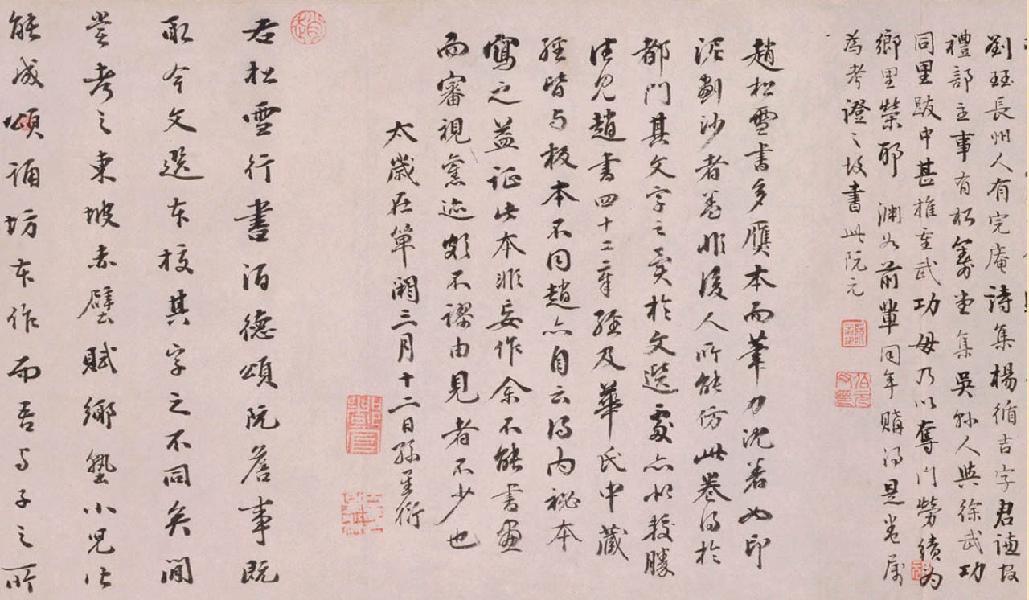 劉珏長州人有完庵詩集楊循吉字君謙官
禮部主事有松籌堂集吳縣人與徐武功
同里跋中甚推重武功毋乃以奪門勞績為
鄉里榮耶淵如前輩同年購得是卷屬
為考證之故書此阮元
趙松雪書多贋本而筆力沈着如印
泥劃沙者蓋非後人所能仿此卷得於
都門其文字之異於文選處亦以較勝
往見趙書四十二章經及華氏中藏
經皆與板本不同趙亦自云得內祕本
寫之益証此本非妄作余不能書畫
而審視舊迹頗不謬由見者不少也
太歲在單閼三月十二日孫星衍
右松雪行書酒德頌阮詹事既
取今文選本校其字之不同矣間
嘗考之東坡赤壁賦鄉塾小兒皆
能成頌誦坊本作而吾與子之所